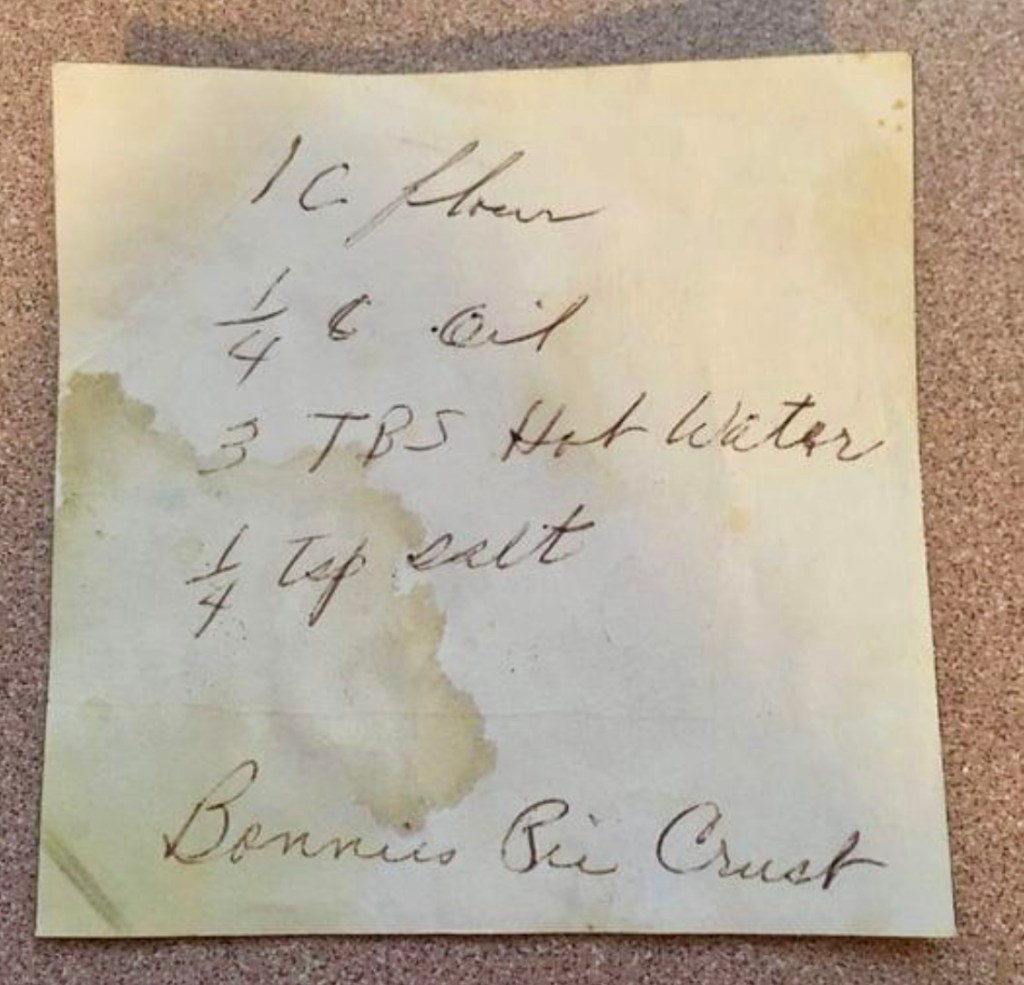 1 C flour
1/4 C Oil
3 TBS Hot Water
1/4 Tsp salt
Bonnies Pie Crust